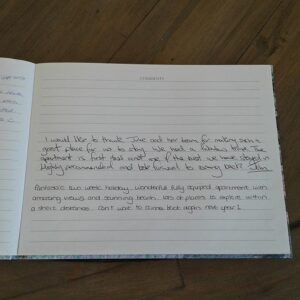 COMMENTS
I would like to thank Sue and her team for making such a
great place for us to stay. We had a fabulous time. The
apartment is first class and one of the best we have stayed in
Highly recommended and look forward to coming back!
Fantastic two week holiday, wonderful fully equiped apartment with
amazing views and stunning beach. Lots of places to explore within
a short distance. Can't wait to come back again next year!